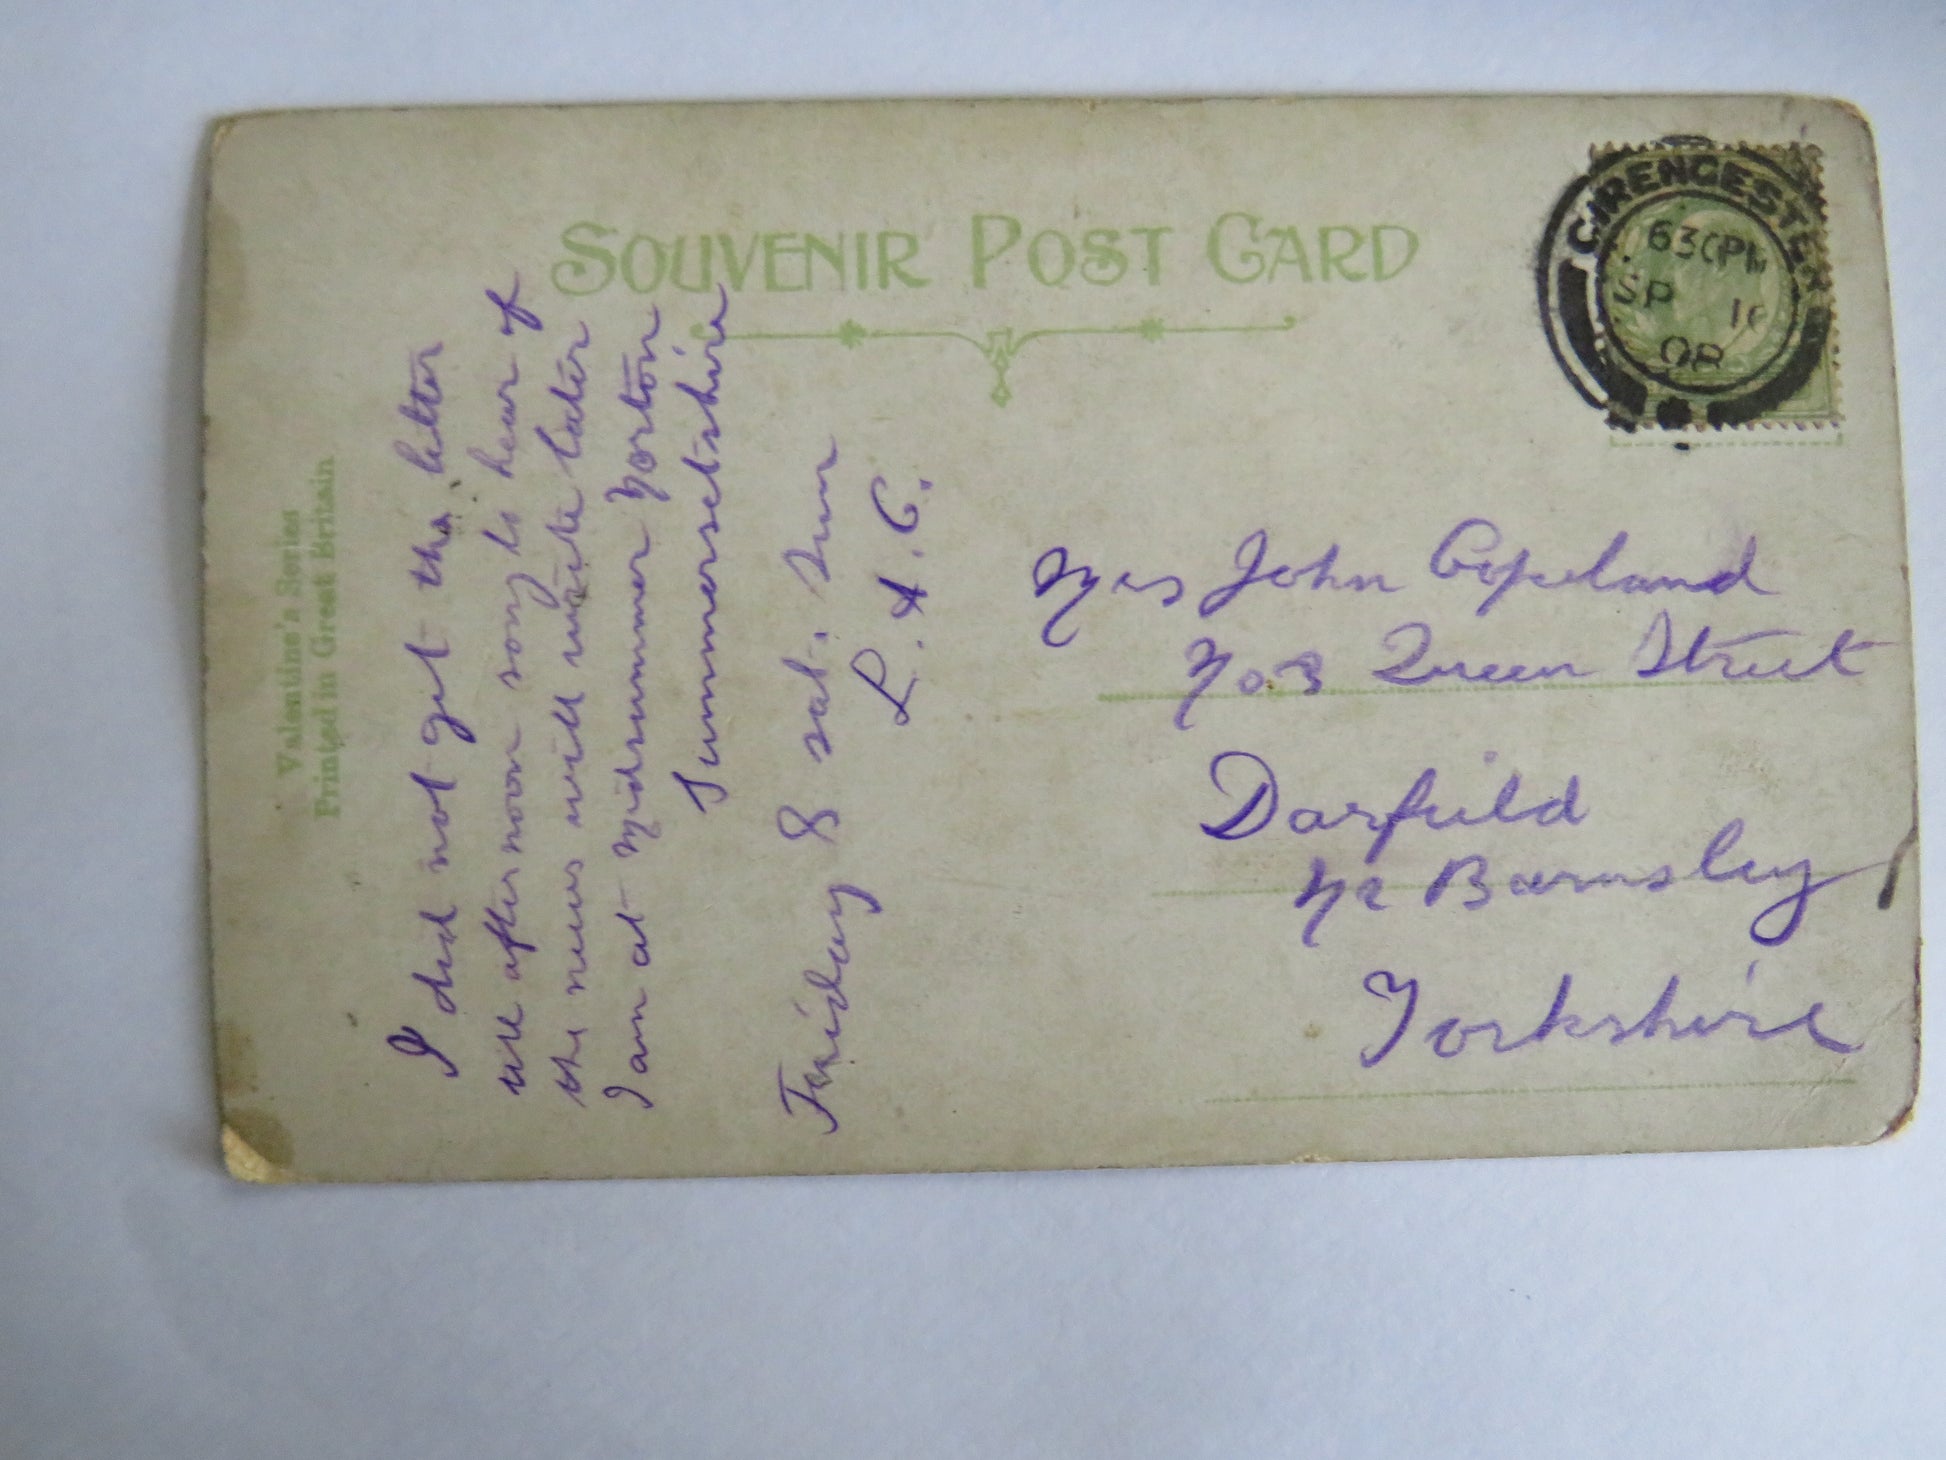 SOUVENIR POST CARD
Valentine's Series
Printed in Great Britain
CIRENCESTER
630PM
SP 18
08
I did not git the letter
till after noon sorry to hear of
the news will write later
I am at Midsummer Norton
Summersetshire
Friday & sat. Sun
L. A. C.
Mrs John Copeland
No 3 Queen Street
Darfield
Nr Barnsley
Yorkshire